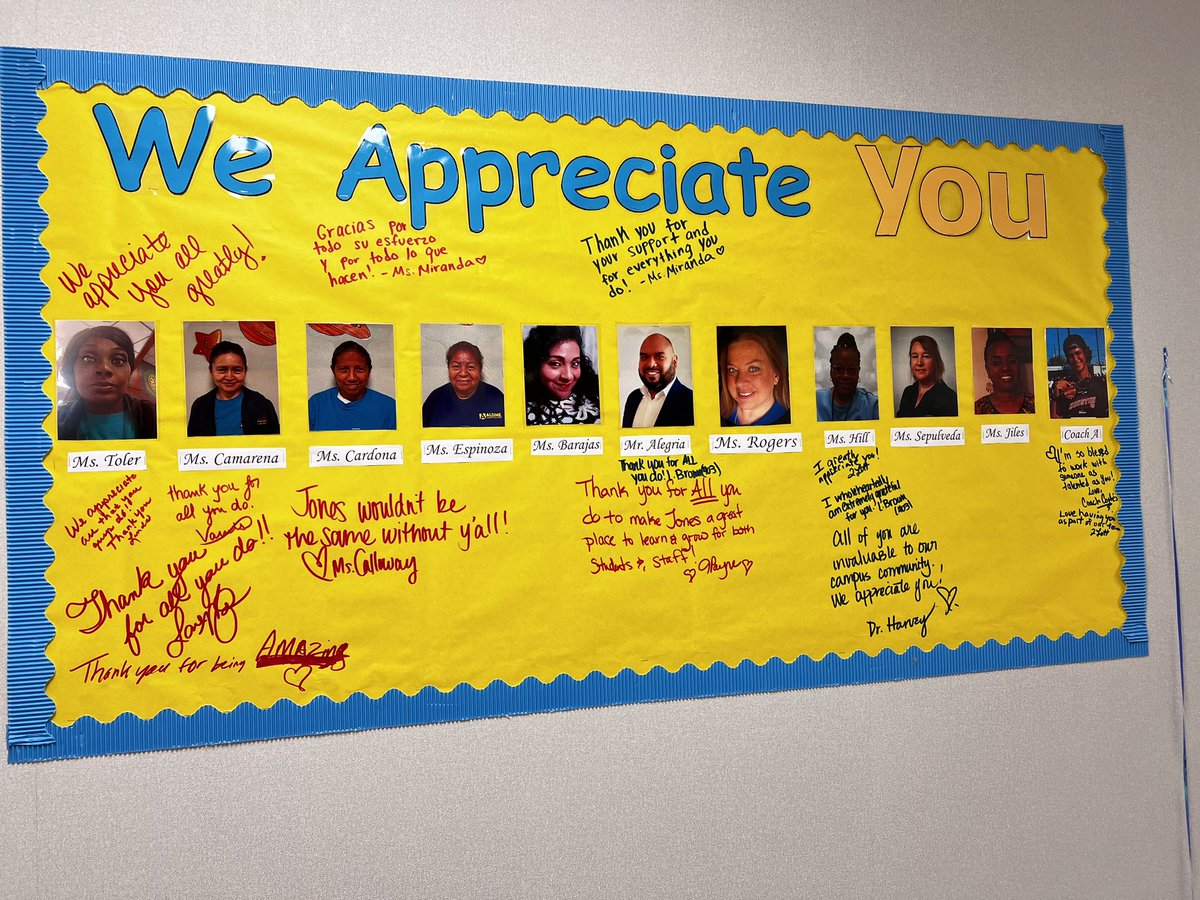 We Appreciate You
We
appreciate
you all
greatly!
Gracias por
todo su esfuerzo
y por todo lo que
hacen! - Ms. Miranda
Thank you for
your support and
for everything you
do! - Ms. Miranda
ALDINE
Ms. Toler
Ms. Camarena
Ms. Cardona
Ms. Espinoza
Ms. Barajas
Mr. Alegria
Ms. Rogers
Ms. Hill
Ms. Sepulveda
Ms. Jiles
Coach A
We appreciate
all that you
guys do!
Thank you
thank you for
all you do.
Thank you
for all you do!!
Thank you for being AMAZing
Jones wouldn't be
the same without y'all!
Ms. Calloway
Thank you for ALL
you do! L. Brown (103)
Thank you for All you
do to make Jones a great
place to learn & grow for both
Students & Staff!
I greatly
appreciate you!
I wholeheartedly
am extremely grateful
for you - L. Brown
(103)
All of you are
invaluable to our
campus community.
We appreciate you!
Dr. Harvey
I'm so blessed
to work with
someone as
talented as you!
Love,
Coach
Love having you
as part of our team